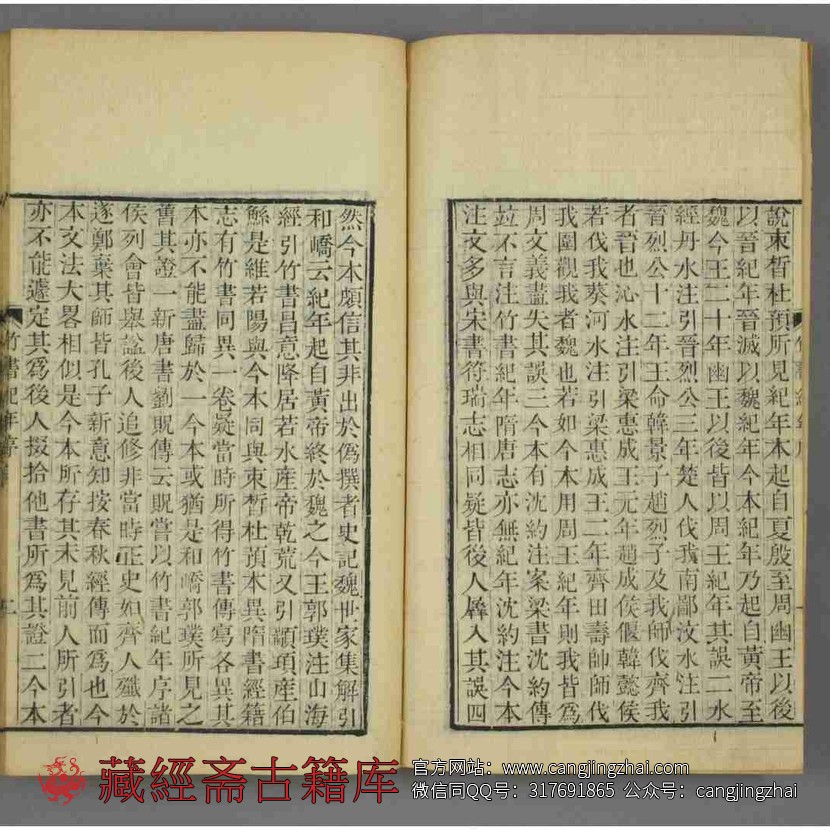 說束晳杜預所見紀年本起自夏殷至周幽王以後
以晉紀年晉滅以魏紀年今本紀年乃起自黃帝至
魏今王二十年幽王以後皆以周王紀年其誤二水
經丹水注引晉烈公三年楚人伐我南鄙汶水注引
晉烈公十二年王命韓景子趙烈子及我師伐齊我
者晉也沁水注引梁惠成王元年趙成侯偃韓懿侯
若伐我葵河水注引梁惠成王二年齊田壽帥師伐
我圍觀我者魏也若如今本用周王紀年則我皆為
周文義盡失其誤三今本有沈約注案梁書沈約傳
竝不言注竹書紀年隋唐志亦無紀年沈約注今本
注文多與宋書符瑞志相同疑皆後人羼入其誤四
然今本頗信其非出於偽撰者史記魏世家集解引
和嶠云紀年起自黃帝終於魏之今王郭璞注山海
經引竹書昌意降居若水產帝乾荒又引顓頊產伯
鯀是維若陽與今本同與束晳杜預本異隋書經籍
志有竹書同異一卷疑當時所得竹書傳寫各異其
本亦不能盡歸於一今本或猶是和嶠郭璞所見之
舊其證一新唐書劉貺傳云貺嘗以竹書紀年序諸
侯列會皆舉諡後人追修非當時正史如齊人殲於
遂鄭棄其師皆孔子新意知按春秋經傳而為也今
本文法大畧相似是今本所存其未見前人所引者
亦不能遽定其為後人掇拾他書所為其證二今本
竹書紀年序
二
藏經斋古籍库
官方网站：www.cangjingzhai.com
微信同QQ号：317691865 公众号：cangjingzhai